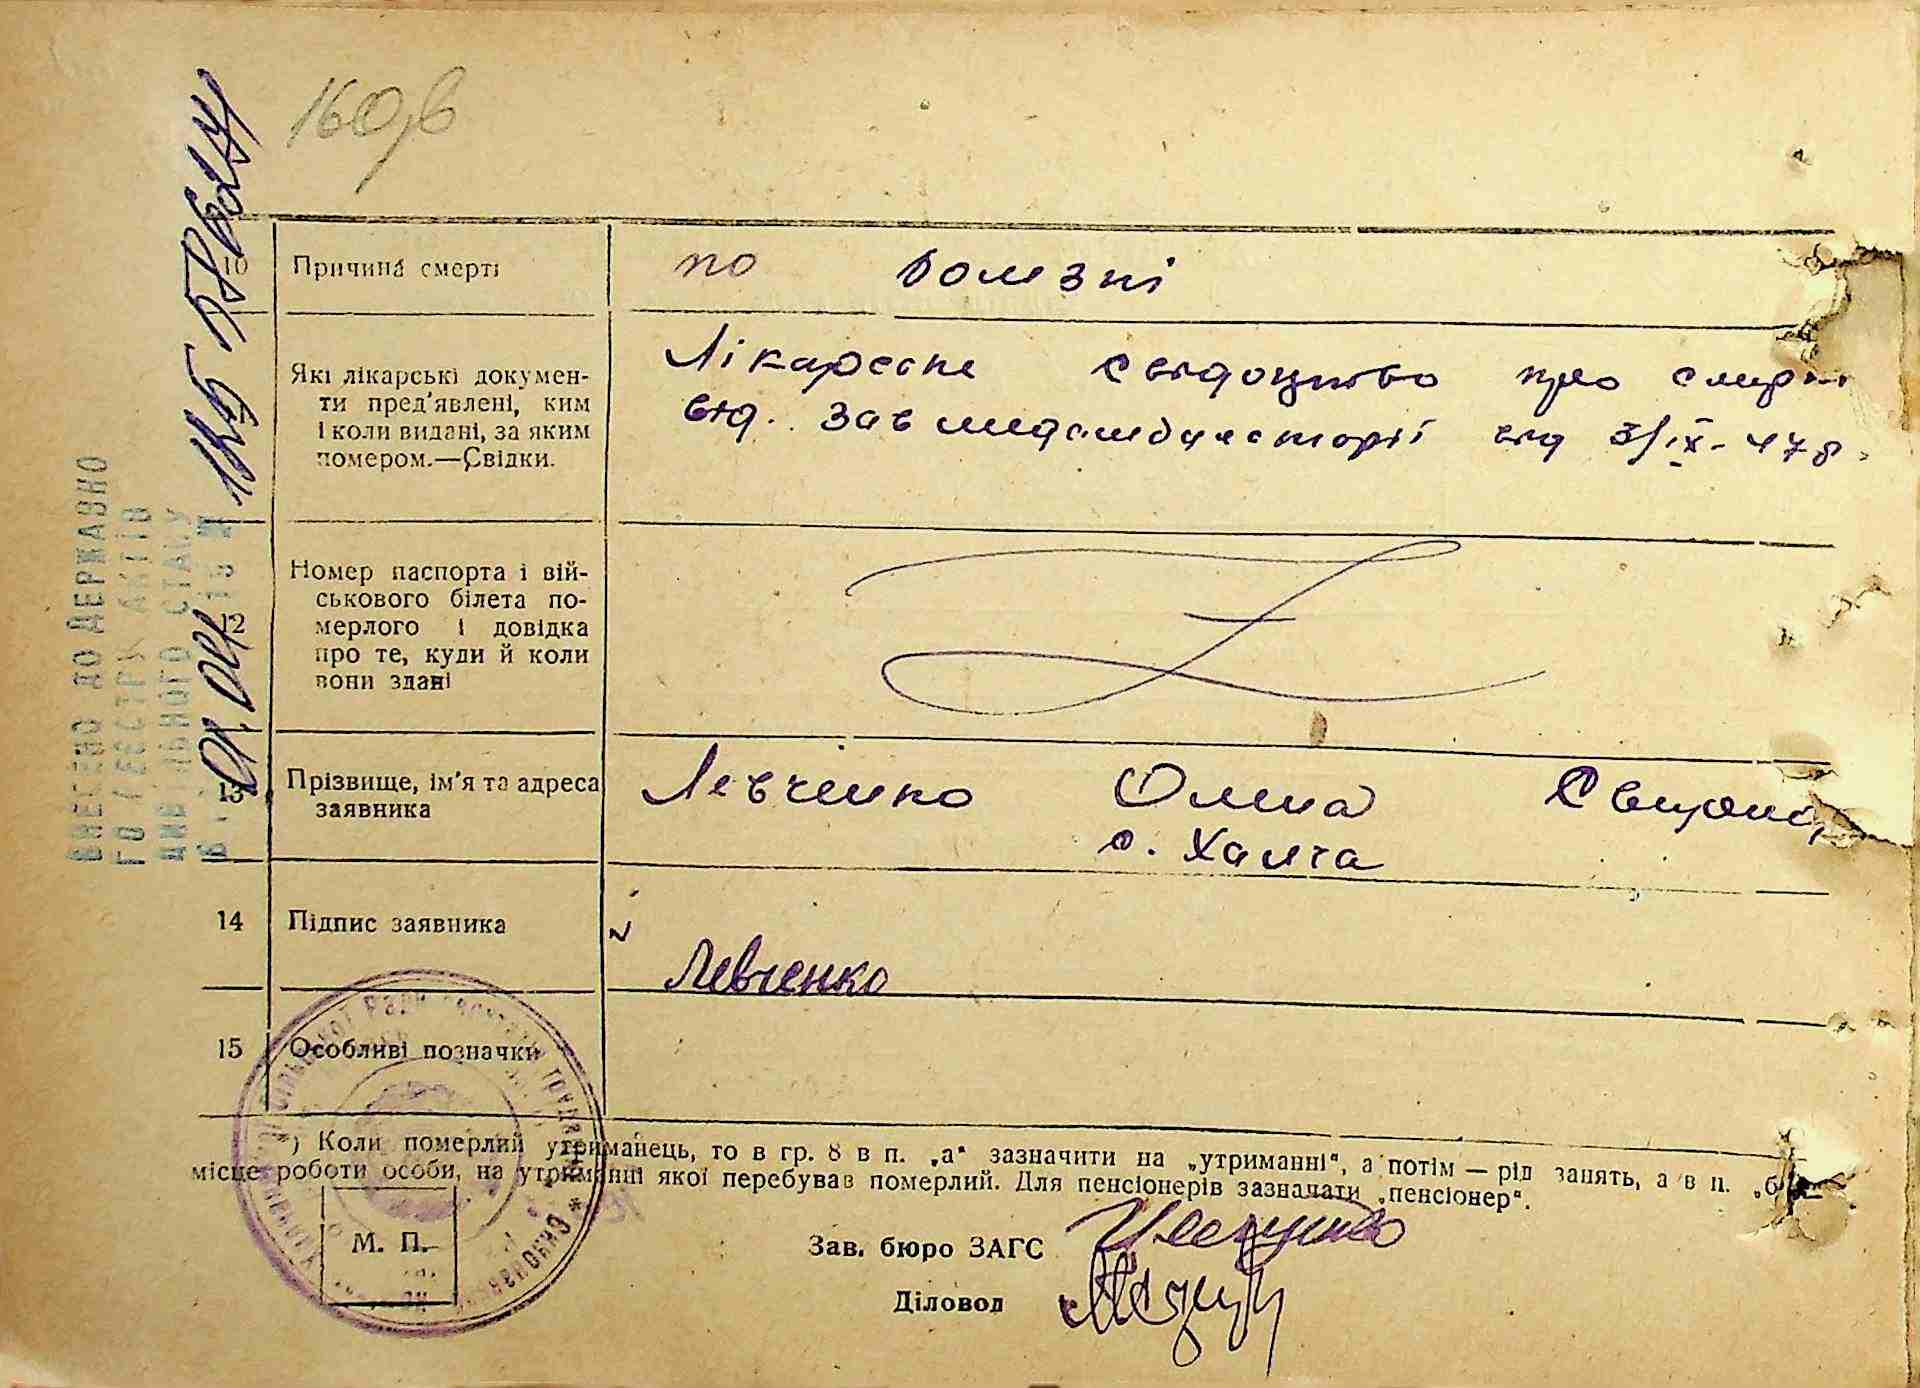 160
10 Причина смерті
по болезні
Які лікарські документи пред'явлені, ким
і коли видані, за яким
номером.—Свідки.
Лікарське свідоцтво про смерть
від. Зав медамбулаторії від 3/ІХ-47р.
12 Номер паспорта і вій-
ськового білета по-
мерлого і довідка
про те, куди й коли
вони здані
13 Прізвище, ім'я та адреса
заявника
Левченко Олена
с. Халча
14 Підпис заявника
Левченко
15 Особливі позначки
) Коли померлий утриманець, то в гр. 8 в п. „а“ зазначити на „утриманні“, а потім — рід занять, а в п. „б“
місце роботи особи, на утриманні якої перебував померлий. Для пенсіонерів зазначати „пенсіонер“.
М. П.
Зав. бюро ЗАГС
Діловод
ВНЕСЕНО ДО ДЕРЖАВНО
ГО РЕЄСТРУ АКТІВ
ЦИВІЛЬНОГО СТАНУ